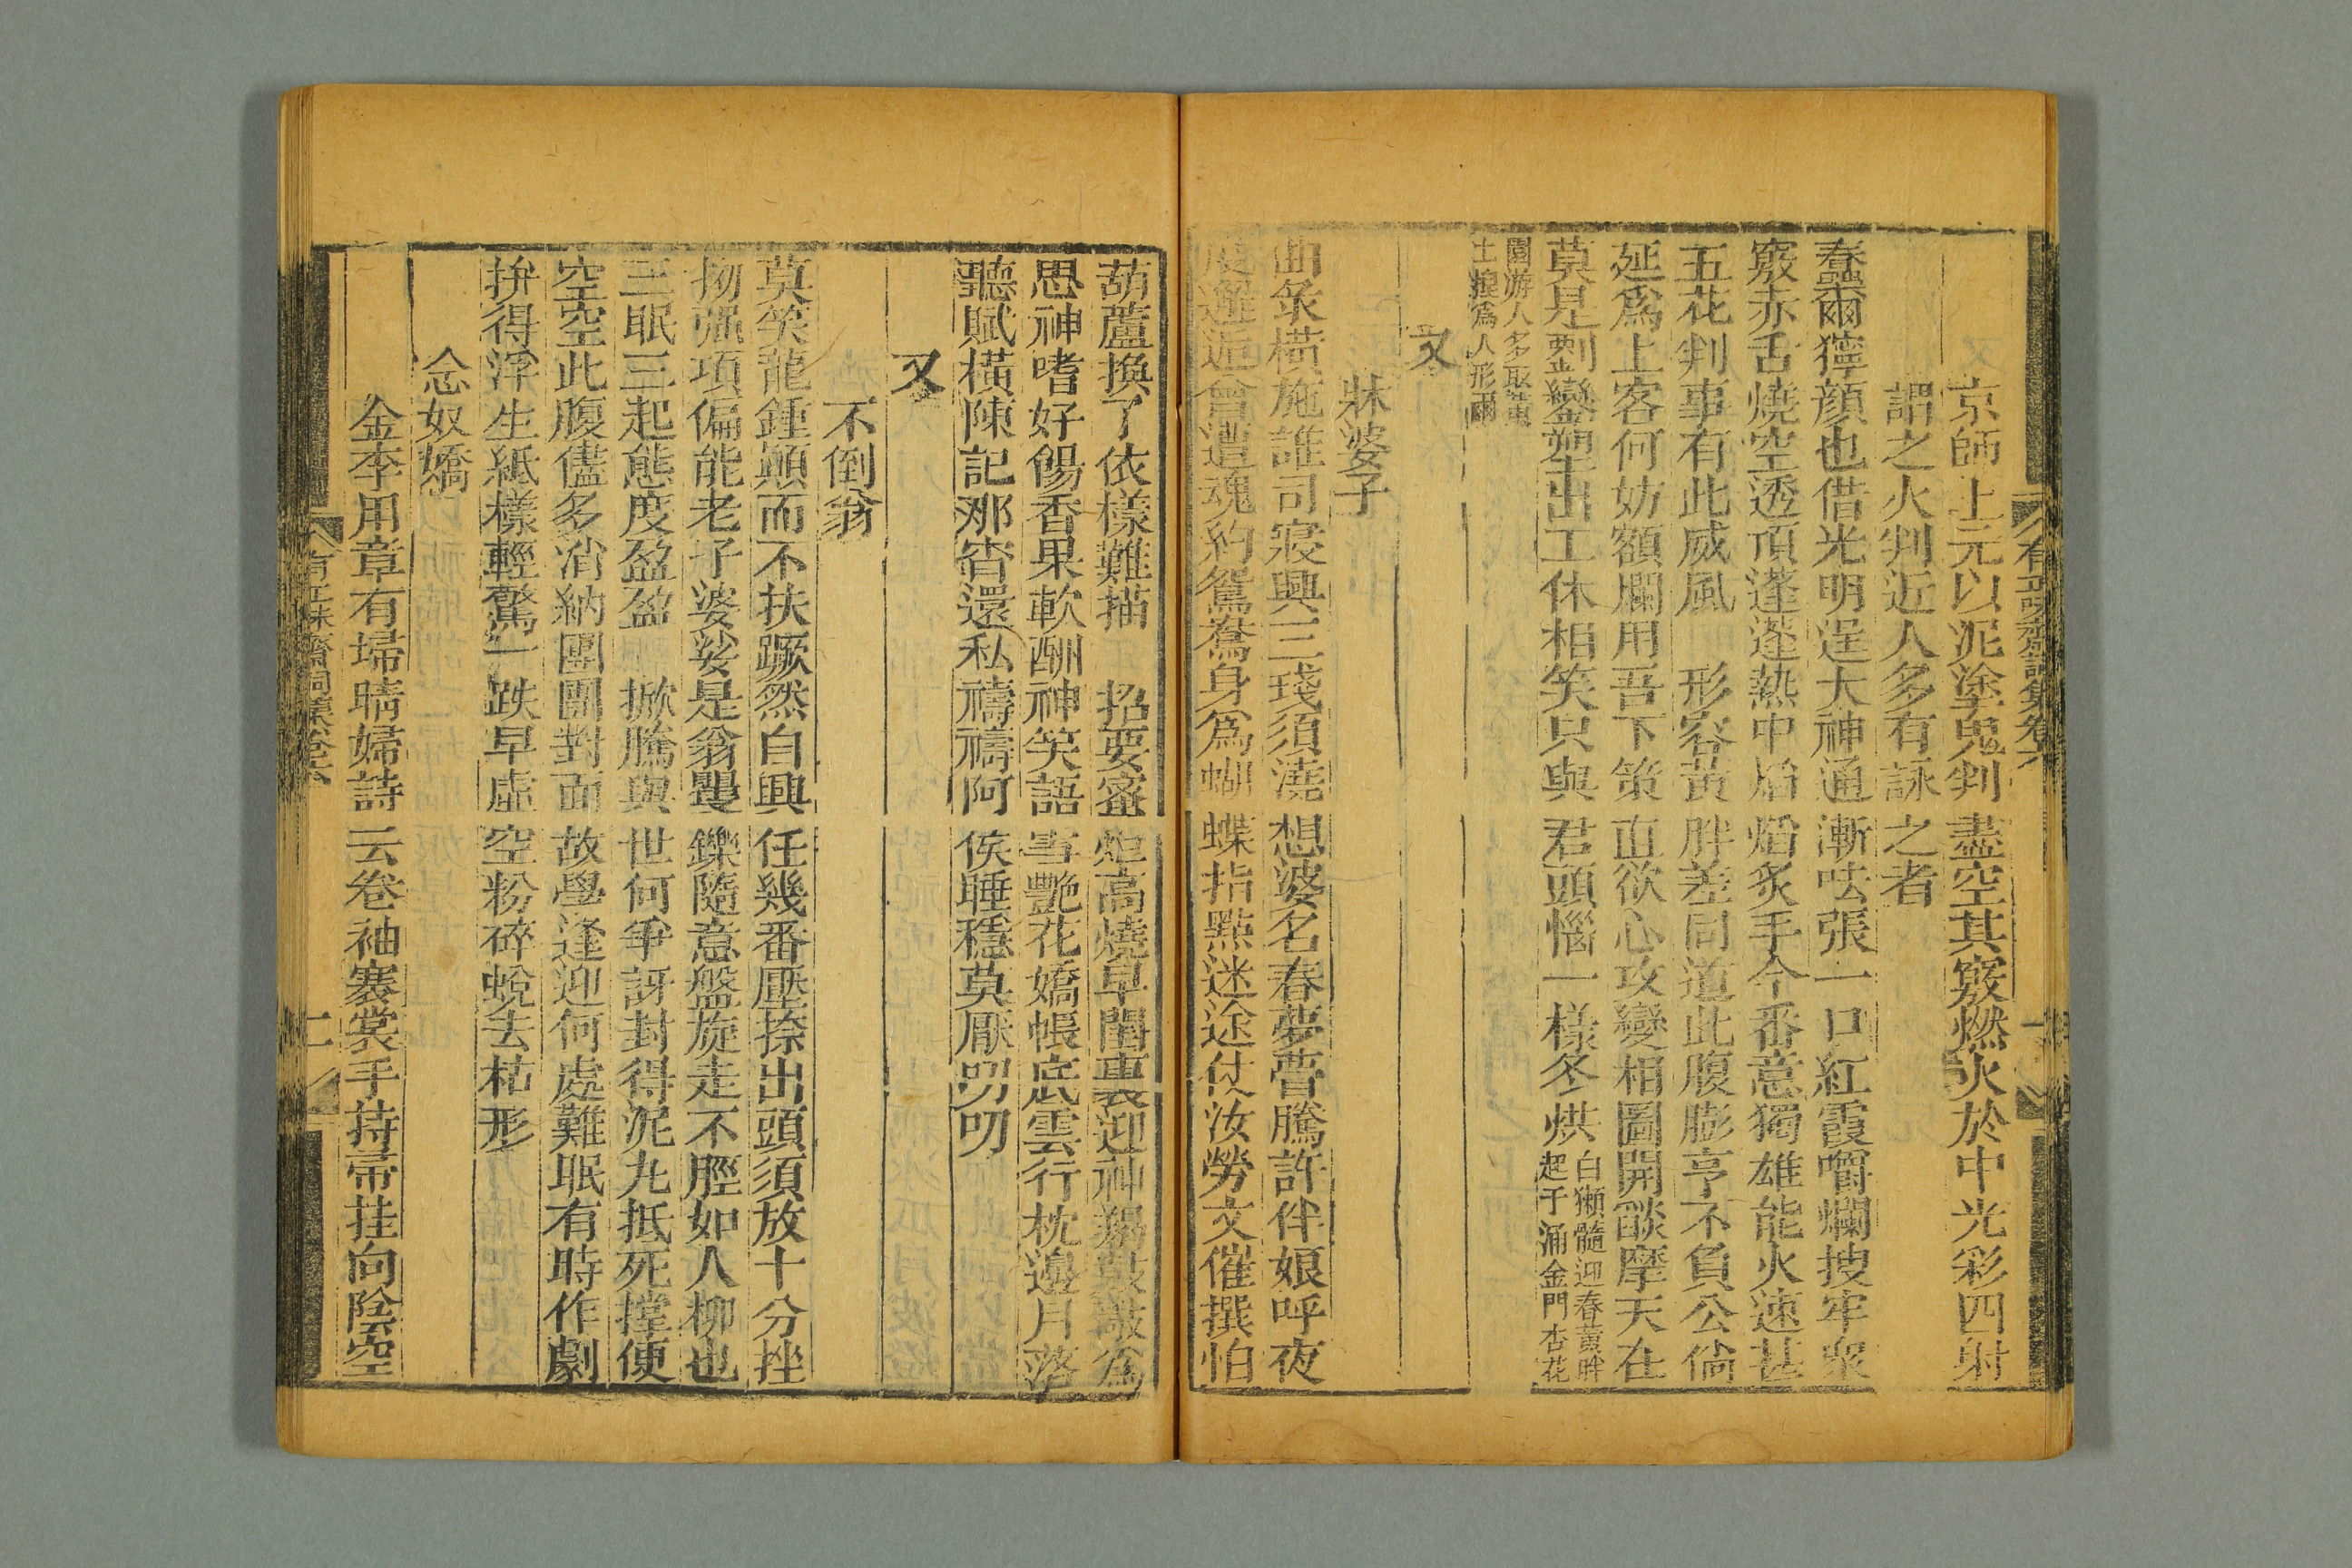 京師上元以泥塗鬼判盡空其竅燃火於中光彩四射
謂之火判近人多有詠之者
蠢爾獰顏也借光明逞大神通漸呿張一口紅霞嚼爛捜牢衆
竅赤舌燒空透頂蓬蓬熱中焰焰炙手今番意獨雄能火速甚
五花判事有此威風 形容黃胖差同道此腹膨亨不負公倘
延爲上客何妨額爛用吾下策直欲心攻變相圖開談摩天在
莫是劉鑾塑出工休相笑只與君頭惱一様冬烘
白獺髓迎春黃胖
起于涌金門杏花
園游人多取黃
土揑爲人形爾
又
牀婆子
曲彔橫施誰司寢興三琖須澆想婆名春夢瞢騰許伴娘呼夜
度邂逅曾遭魂約鴛鴦身爲蝴蝶指點迷途仗汝勞文催撰怕
葫蘆換了依樣難描 招要密炬高燒早閨裏迎神羯鼓敲爲
思神嗜好餳香果軟酬神笑語雪艷花嬌帳底雲行枕邊月落
聽賦橫陳記那宵還私禱禱阿侯睡穩莫厭叨叨
又
不倒翁
莫笑龍鍾顚而不扶蹶然自興任幾番壓捺出頭須放十分挫
拗强項偏能老子婆娑是翁矍鑠隨意盤旋走不脛如人柳也
三眠三起態度盈盈 掀騰與世何爭訝封得泥丸抵死撐便
空空此腹儘多消納團團對面故學逢迎何處難眠有時作劇
拚得浮生紙樣輕驚一跌早虛空粉碎蛻去枯形
念奴嬌
金李用章有埽晴婦詩云卷袖褰裳手持帚挂向陰空
有正味齋詞集卷六
一
有正味齋詞集卷六
二